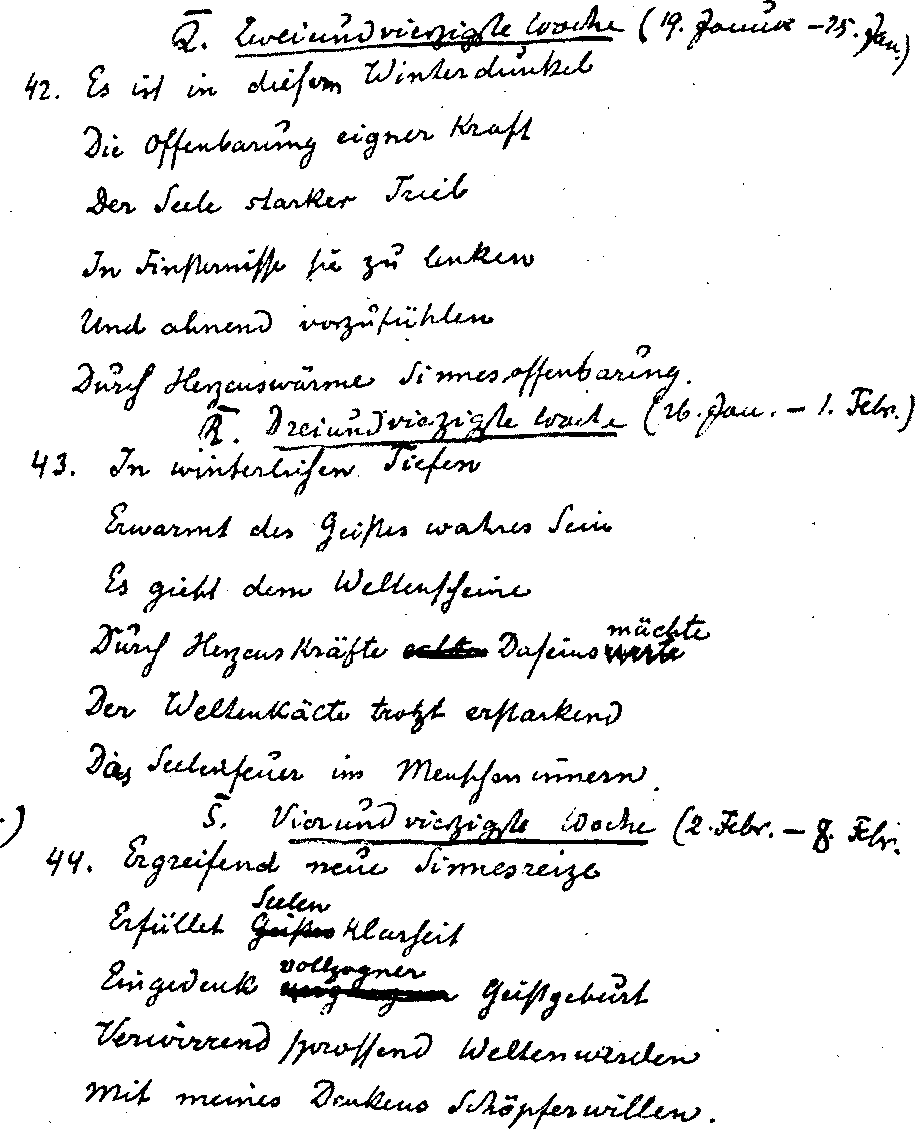 Q̅. Zweiundvierzigste Woche (19. Januar – 25. Jan.)
42. Es ist in diesem Winterdunkel
Die Offenbarung eigner Kraft
Der Seele starker Trieb
In Finsternisse sie zu lenken
Und ahnend vorzufühlen
Durch Herzenswärme Sinnesoffenbarung.
R̅. Dreiundvierzigste Woche (26. Jan. – 1. Febr.)
43. In winterlichen Tiefen
Erwarmt des Geistes wahres Sein
Es giebt dem Weltenscheine
mächte
Durch Herzenskräfte Daseins
Der Weltenkälte trotzt erstarkend
Das Seelenfeuer im Menscheninnern.
.)
S̅. Vierundvierzigste Woche (2. Febr. – 8. Febr.
44. Ergreifend neue Sinnesreize
Seelen
Erfüllet Geistes klarheit
vollzogner
Eingedenk Geistgeburt
Verwirrend sprossend Weltenwerden
Mit meines Denkens Schöpferwillen.